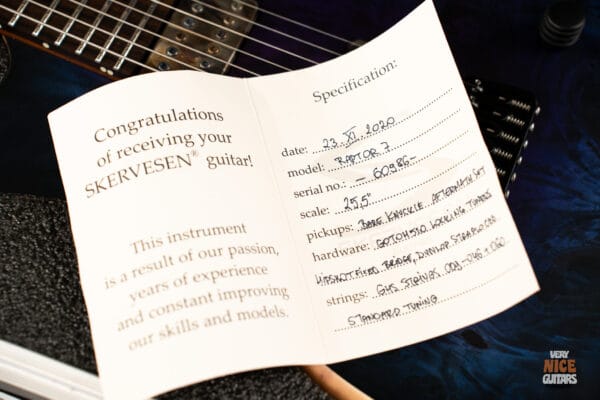 Congratulations
of receiving your
SKERVESEN® guitar!
This instrument
is a result of our passion,
years of experience
and constant improving
our skills and models.
Specification:
date: 23 XI 2020
model: RAPTOR 7
serial no.: - 60986-
scale: 25,5"
pickups: BARE KNUCKLE AFTERMATH SET
hardware: GOTOH 510 LOCKING TUNERS
HIPSHOT FIXED BRIDGE, DUNLOP STRAPLOCK
strings: GHS STRINGS 009-046 + 060
STANDARD TUNING
VERY
NICE
GUITARS